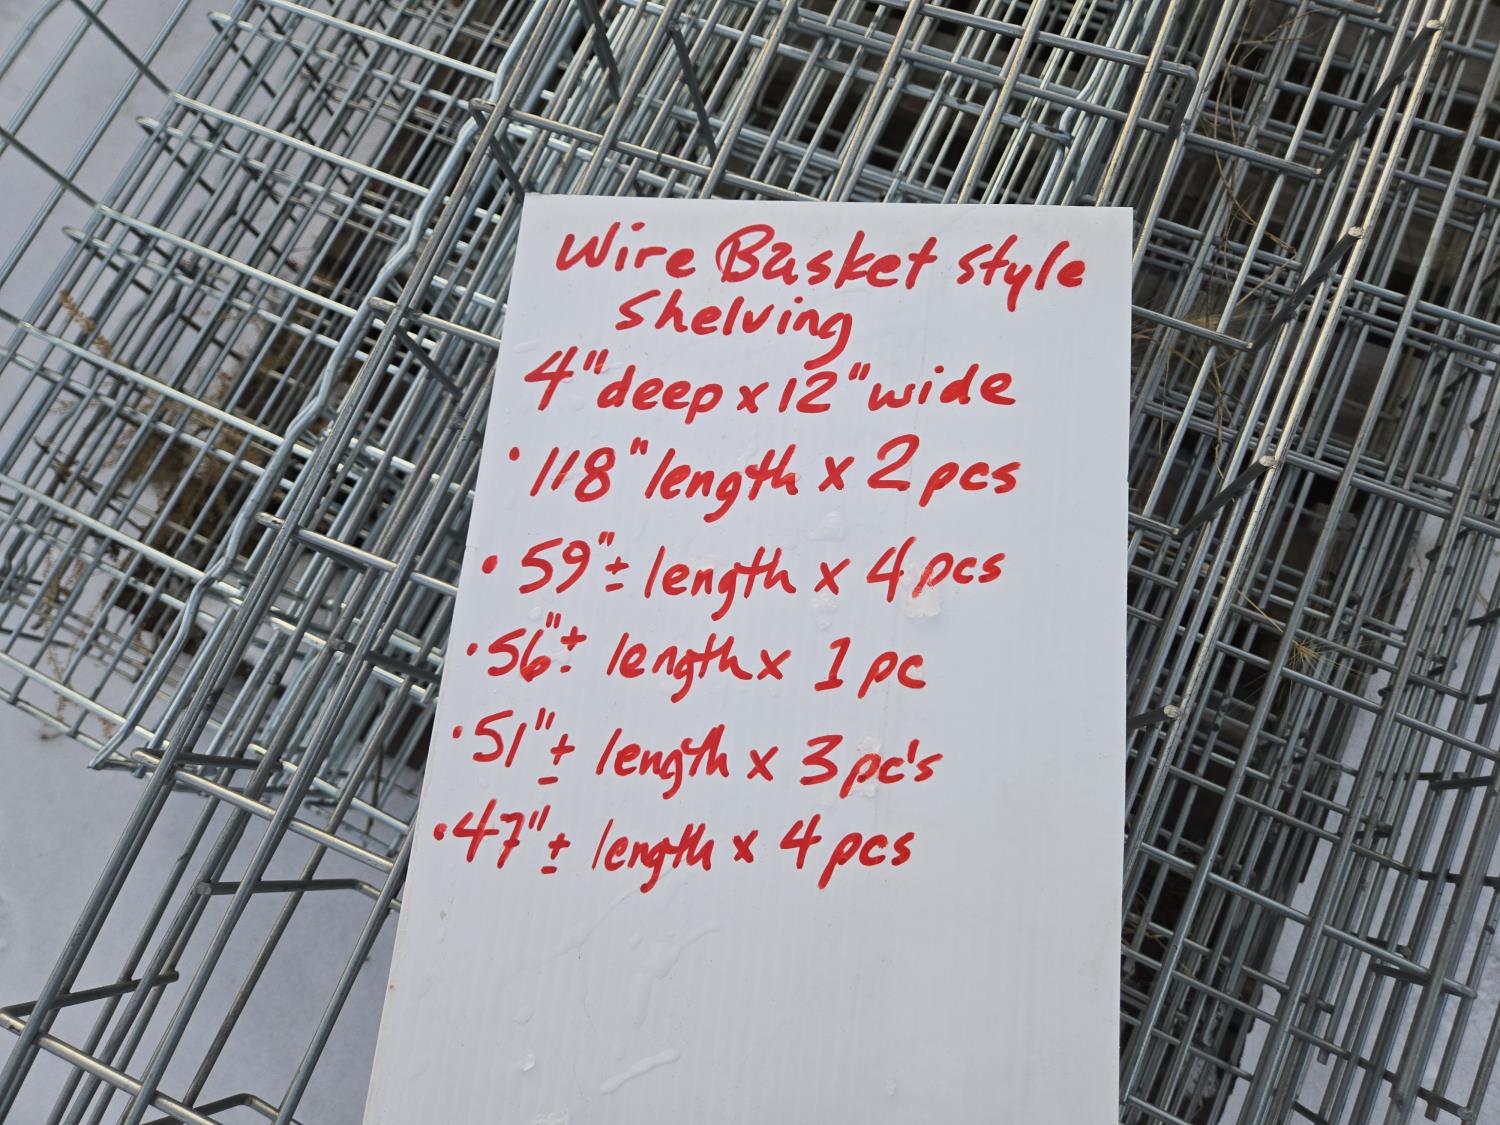 Wire Basket Style
Shelving
4" deep x 12" wide
• 118" length x 2 pcs
• 59" ± length x 4 pcs
• 56" ± length x 1 pc
• 51" ± length x 3 pc's
• 47" ± length x 4 pcs